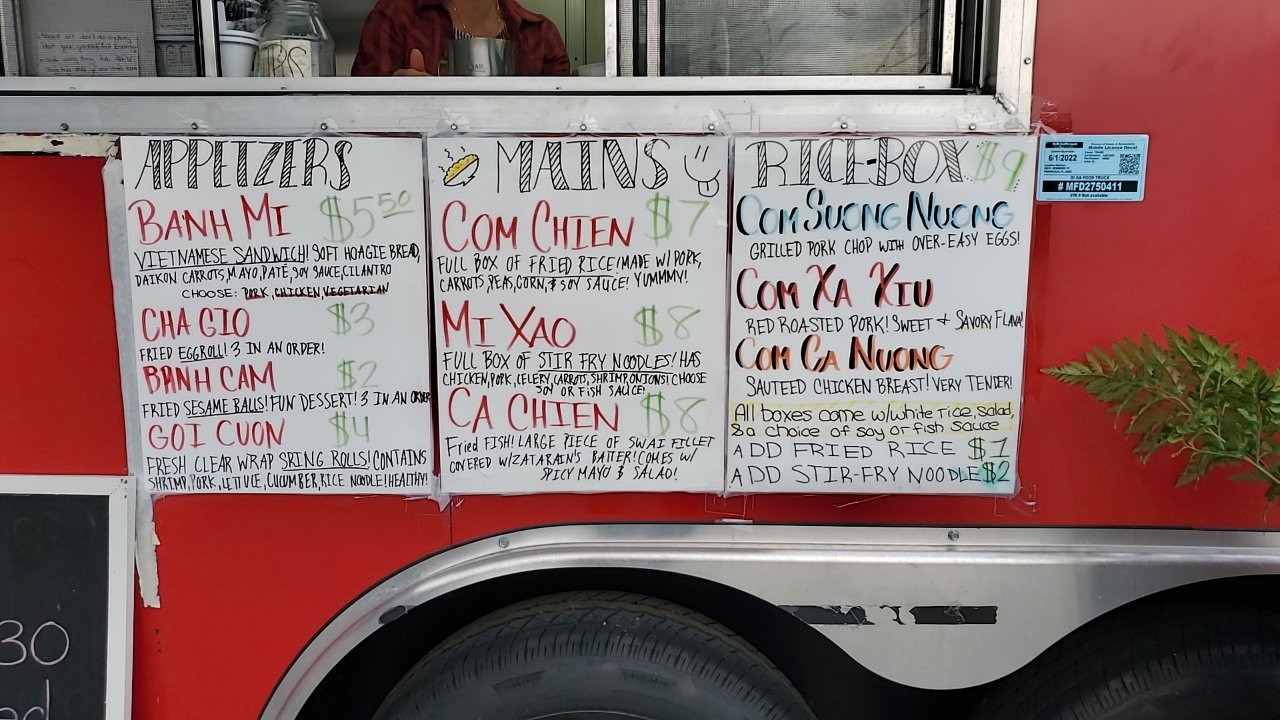 APPETIZERS
BANH MI $5.50
VIETNAMESE SANDWICH! SOFT HOAGIE BREAD,
DAIKON CARROTS, MAYO, PATÉ, SOY SAUCE, CILANTRO
CHOOSE: PORK, CHICKEN, VEGETARIAN
CHA GIO $3
FRIED EGGROLL! 3 IN AN ORDER!
BANH CAM $2
FRIED SESAME BALLS! FUN DESSERT! 3 IN AN ORDER
GOI CUON $4
FRESH CLEAR WRAP SRING ROLLS! CONTAINS
SHRIMP, PORK, LETTUCE, CUCUMBER, RICE NOODLE! HEALTHY!
MAINS
COM CHIEN $7
FULL BOX OF FRIED RICE! MADE W/ PORK,
CARROTS, PEAS, CORN, & SOY SAUCE! YUMMMY!
MI XAO $8
FULL BOX OF STIR FRY NOODLES! HAS
CHICKEN, PORK, CELERY, CARROTS, SHRIMP, ONIONS! CHOOSE
SOY OR FISH SAUCE!
CA CHIEN $8
Fried FISH! LARGE PIECE OF SWAI FILLET
COVERED W/ZATARAIN'S BATTER! COMES W/
SPICY MAYO & SALAD!
RICE-BOX $9
COM SUONG NUONG
GRILLED PORK CHOP WITH OVER-EASY EGGS!
COM XA XIU
RED ROASTED PORK! SWEET + SAVORY FLAVA!
COM GA NUONG
SAUTEED CHICKEN BREAST! VERY TENDER!
All boxes come w/white rice, salad,
& a choice of soy or fish sauce
ADD FRIED RICE $1
ADD STIR-FRY NOODLE $2
Mobile License Decal
6/1/2022
DI DA FOOD TRUCK
# MFD2750411
VIN # Not available
TIPS
30
ed